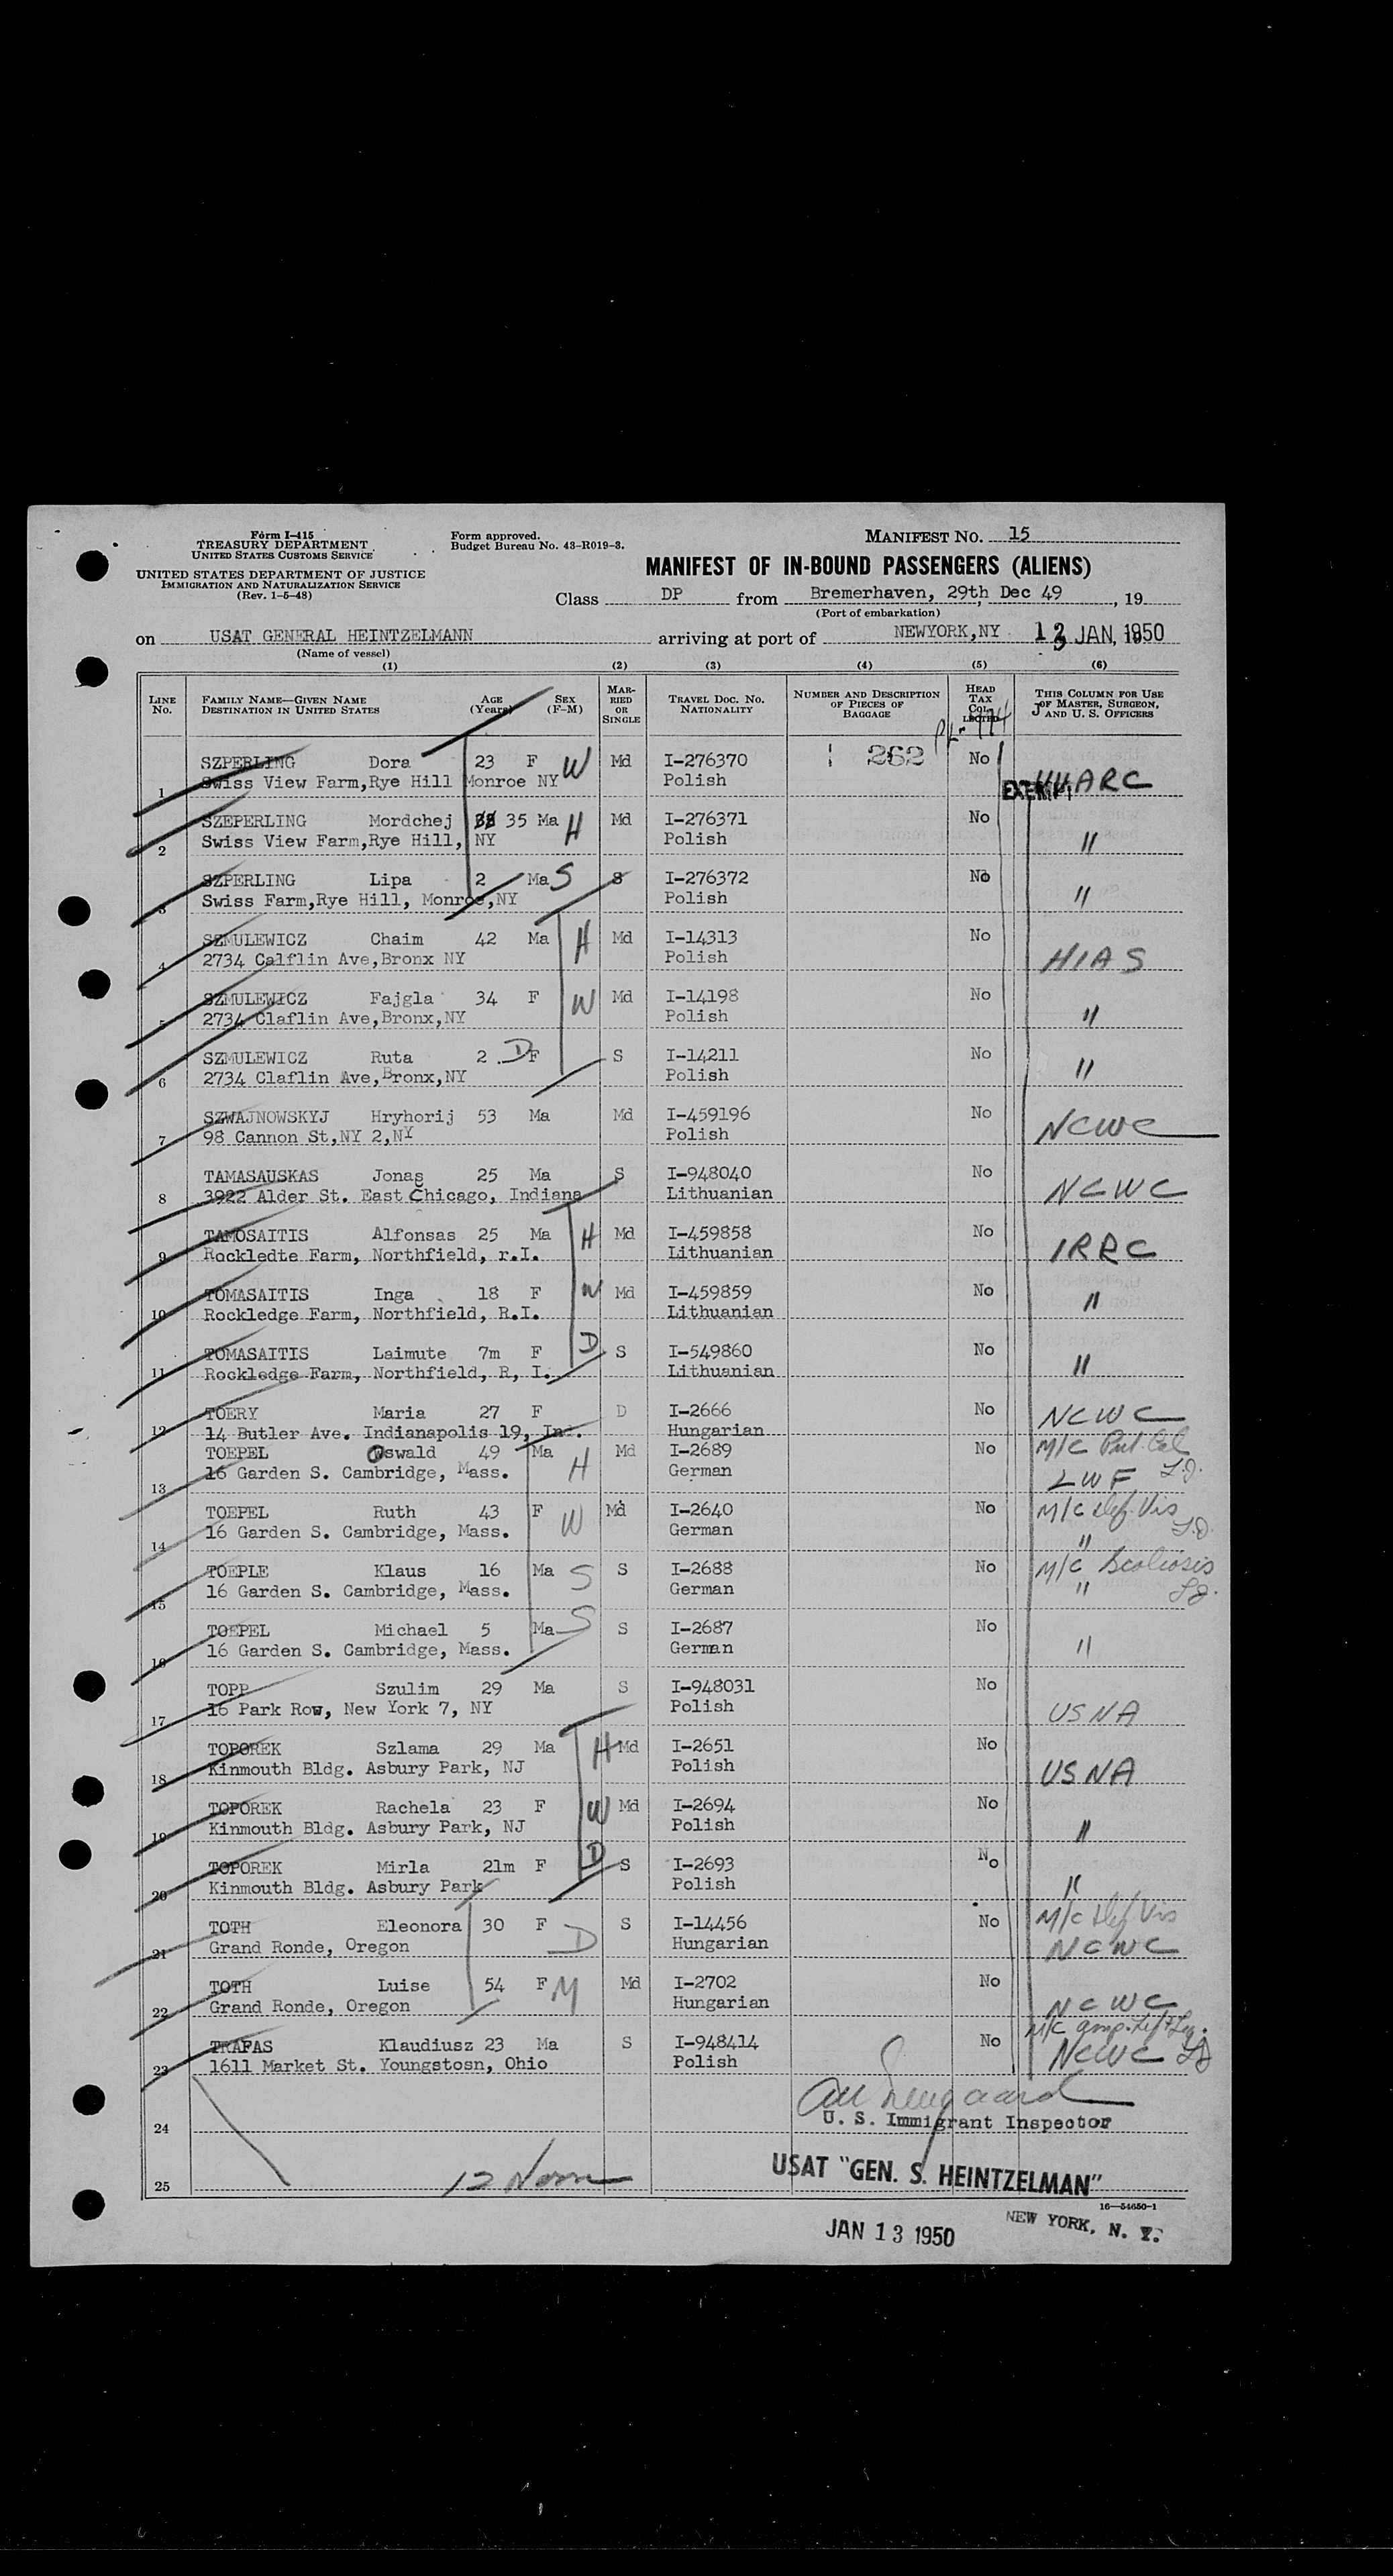 Form I-415
TREASURY DEPARTMENT
UNITED STATES CUSTOMS SERVICE
UNITED STATES DEPARTMENT OF JUSTICE
IMMIGRATION AND NATURALIZATION SERVICE
(Rev. 1-5-48)
Form approved.
Budget Bureau No. 43-R019-3.
MANIFEST NO. 15
MANIFEST OF IN-BOUND PASSENGERS (ALIENS)
Class DP from Bremerhaven, 29th Dec 49, 19
(Port of embarkation)
on USAT GENERAL HEINTZELMANN arriving at port of NEWYORK,NY 13 JAN, 1950
(Name of vessel)
(1) (2) (3) (4) (5) (6)
LINE No. FAMILY NAME—GIVEN NAME DESTINATION IN UNITED STATES AGE (Years) SEX (F-M) MARRIED OR SINGLE TRAVEL DOC. NO. NATIONALITY NUMBER AND DESCRIPTION OF PIECES OF BAGGAGE HEAD TAX COLLECTED THIS COLUMN FOR USE OF MASTER, SURGEON, AND U. S. OFFICERS
SZPERLING Dora 23 F W Md I-276370 262 No
1 Swiss View Farm,Rye Hill Monroe NY Polish EXEMPT ARC
SZEPERLING Mordchej 35 Ma H Md I-276371 No
2 Swiss View Farm,Rye Hill, NY Polish "
SZPERLING Lipa 2 Ma S S I-276372 No
3 Swiss Farm,Rye Hill, Monroe,NY Polish "
SZMULEWICZ Chaim 42 Ma H Md I-14313 No
4 2734 Calflin Ave,Bronx NY Polish HIAS
SZMULEWICZ Fajgla 34 F W Md I-14198 No
5 2734 Claflin Ave,Bronx,NY Polish "
SZMULEWICZ Ruta 2 D F S I-14211 No
6 2734 Claflin Ave,Bronx,NY Polish "
SZWAJNOWSKYJ Hryhorij 53 Ma Md I-459196 No
7 98 Cannon St,NY 2,NY Polish NCWC
TAMASAUSKAS Jonas 25 Ma S I-948040 No
8 3922 Alder St. East Chicago, Indiana Lithuanian NCWC
TAMOSAITIS Alfonsas 25 Ma H Md I-459858 No
9 Rockledte Farm, Northfield, r.I. Lithuanian IRRC
TOMASAITIS Inga 18 F W Md I-459859 No
10 Rockledge Farm, Northfield, R.I. Lithuanian "
TOMASAITIS Laimute 7m F D S I-549860 No
11 Rockledge Farm, Northfield, R, I. Lithuanian "
TOERY Maria 27 F D I-2666 No NCWC
12 14 Butler Ave. Indianapolis 19, Ind. Hungarian
TOEPEL Oswald 49 Ma H Md I-2689 No M/C
13 16 Garden S. Cambridge, Mass. German LWF
TOEPEL Ruth 43 F W Md I-2640 No M/C Def. Vis
14 16 Garden S. Cambridge, Mass. German "
TOEPLE Klaus 16 Ma S S I-2688 No M/C Scoliosis
15 16 Garden S. Cambridge, Mass. German "
TOEPEL Michael 5 Ma S S I-2687 No
16 16 Garden S. Cambridge, Mass. German "
TOPP Szulim 29 Ma S I-948031 No
17 16 Park Row, New York 7, NY Polish USNA
TOPOREK Szlama 29 Ma H Md I-2651 No
18 Kinmouth Bldg. Asbury Park, NJ Polish USNA
TOPOREK Rachela 23 F W Md I-2694 No
19 Kinmouth Bldg. Asbury Park, NJ Polish "
TOPOREK Mirla 21m F D S I-2693 No
20 Kinmouth Bldg. Asbury Park Polish "
TOTH Eleonora 30 F D S I-14456 No M/C Def. Vis
21 Grand Ronde, Oregon Hungarian NCWC
TOTH Luise 54 F M Md I-2702 No
22 Grand Ronde, Oregon Hungarian NCWC
TRAFAS Klaudiusz 23 Ma S I-948414 No M/C amp. Left Leg.
23 1611 Market St. Youngstosn, Ohio Polish NCWC
24 U. S. Immigrant Inspector
25 12 Noon USAT "GEN. S. HEINTZELMAN"
16—54650-1
JAN 13 1950 NEW YORK, N. Y.